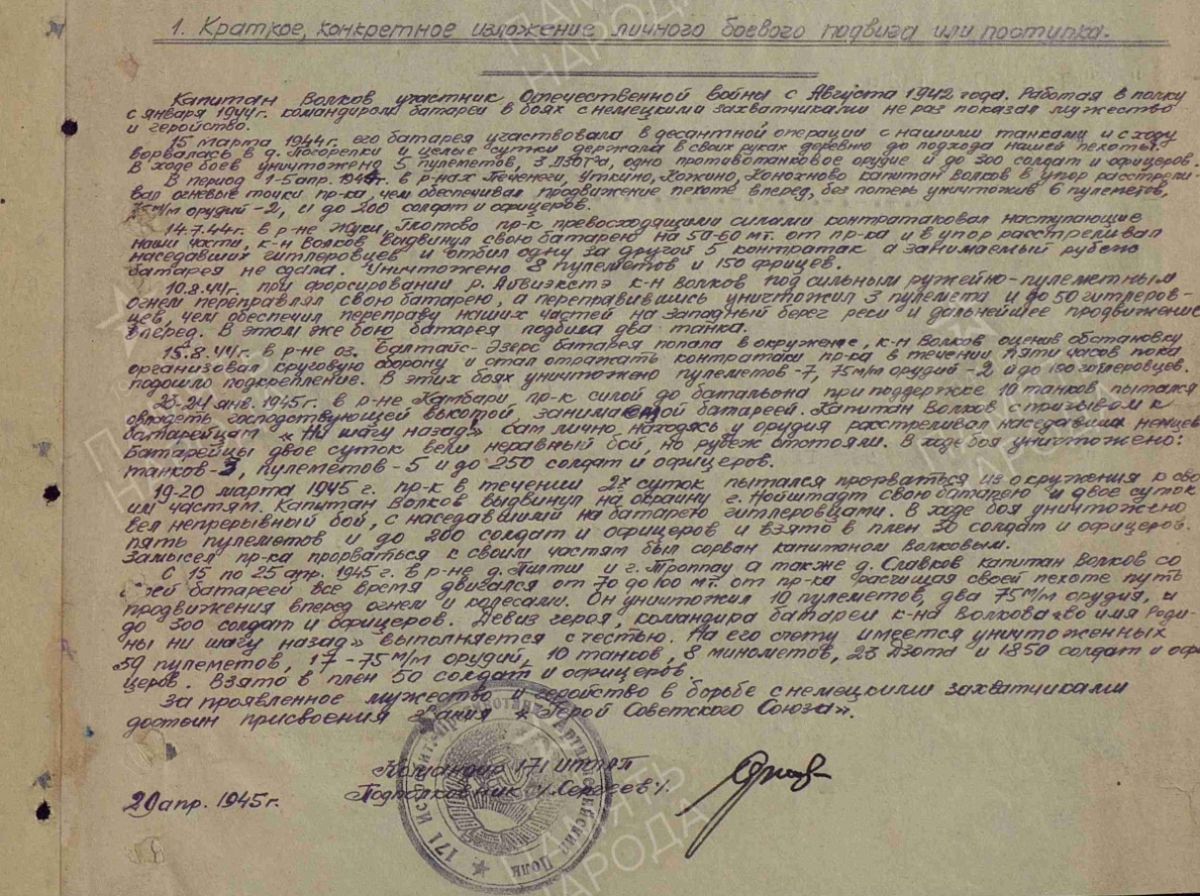 1. Краткое, конкретное изложение личного боевого подвига или поступка.
Капитан Волков участник Отечественной войны с Августа 1942 года. Работая в полку
с января 1944г. командиром батареи в боях с немецкими захватчиками не раз показал мужество
и геройство.
15 марта 1944г. его батарея участвовала в десантной операции с нашими танками и с ходу
ворвалась в д. Погорелки и целые сутки держала в своих руках деревню до подхода нашей пехоты.
В ходе боев уничтожено 5 пулеметов, 3 дзота, одно противотанковое орудие и до 300 солдат и офицеров
В период 1-5 апр. 1944г. в р-нах Печенеги, Уткино, Хожино, Конохново капитан Волков в упор расстрели-
вал огневые точки пр-ка, чем обеспечивал продвижение пехоте вперед, без потерь уничтожив 6 пулеметов,
75 м/м орудий-2, и до 200 солдат и офицеров.
14.7.44г. в р-не Жуки, Глотово пр-к превосходящими силами контратаковал наступающие
наши части, к-н Волков выдвинул свою батарею на 50-60 мт. от пр-ка и в упор расстреливал
наседавших гитлеровцев и отбил одну за другой 5 контратак а занимаемый рубеж
батарея не сдала. Уничтожено 8 пулеметов и 150 фрицев.
10.8.44г. при форсировании р. Айвиэкстэ к-н Волков под сильным ружейно-пулеметным
огнем переправлял свою батарею, а переправившись уничтожил 3 пулемета и до 50 гитлеров-
цев, чем обеспечил переправу наших частей на западный берег реки и дальнейшее продвижение
вперед. В этом же бою батарея подбила два танка.
15.8.44г. в р-не оз. Балтайс-Эзерс батарея попала в окружение, к-н Волков оценив обстановку
организовал круговую оборону и стал отражать контратаки пр-ка в течении пяти часов пока
подошло подкрепление. В этих боях уничтожено пулеметов-7, 75 м/м орудий-2 и до 100 гитлеровцев.
23-24 янв. 1945г. в р-не Камбари, пр-к силой до батальона при поддержке 10 танков пытался
овладеть господствующей высотой, занимаемой батареей. Капитан Волков с призывом к
батарейцам «Ни шагу назад» сам лично находясь у орудия расстреливал наседавших немцев
Батарейцы двое суток вели неравный бой, но рубеж отстояли. В ходе боя уничтожено:
танков-3, пулеметов-5 и до 250 солдат и офицеров.
19-20 марта 1945 г. пр-к в течении 2х суток пытался прорваться из окружения к сво
им частям. Капитан Волков выдвинул на окраину г. Нойштадт свою батарею и двое суток
вел непрерывный бой, с наседавшими на батарею гитлеровцами. В ходе боя уничтожено
пять пулеметов и до 200 солдат и офицеров и взято в плен 30 солдат и офицеров.
Замысел пр-ка прорваться к своим частям был сорван капитаном Волковым.
С 15 по 25 апр. 1945 г. в р-не д. Пилтш и г. Троппау а также д. Славков капитан Волков со
своей батареей все время двигался от 70 до 100 мт. от пр-ка расчищая своей пехоте путь
продвижения вперед огнем и колесами. Он уничтожил 10 пулеметов, два 75 м/м орудия, и
до 300 солдат и офицеров. Девиз героя, командира батареи к-на Волкова «во имя Роди-
ны ни шагу назад» выполняется с честью. На его счету имеется уничтоженных
59 пулеметов, 17-75 м/м орудий, 10 танков, 8 минометов, 23 дзота и 1850 солдат и офи
церов. Взято в плен 50 солдат и офицеров
За проявленное мужество и геройство в борьбе с немецкими захватчиками
достоин присвоения звания «Герой Советского Союза».
Командир 171 ИПТАП
Подполковник /Сергеев/.
29 апр. 1945г.
171 Истребит. Противотанк. Артиллерийский Полк
ПАМЯТЬ НАРОДА